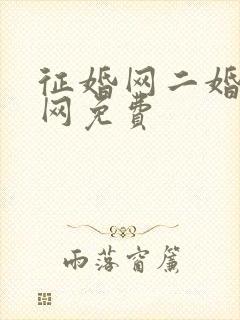 征婚网二婚
网免费
雨落窗帘